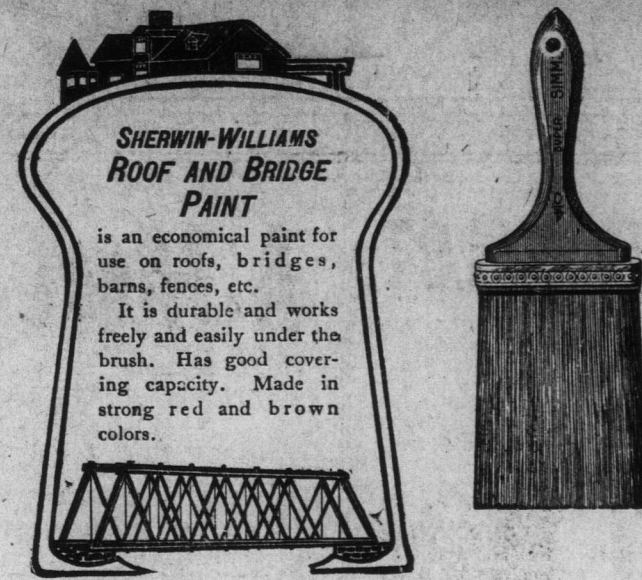 SHERWIN-WILLIAMS
ROOF AND BRIDGE
PAINT
is an economical paint for
use on roofs, bridges,
barns, fences, etc.
It is durable and works
freely and easily under the
brush. Has good cover-
ing capacity. Made in
strong red and brown
colors.